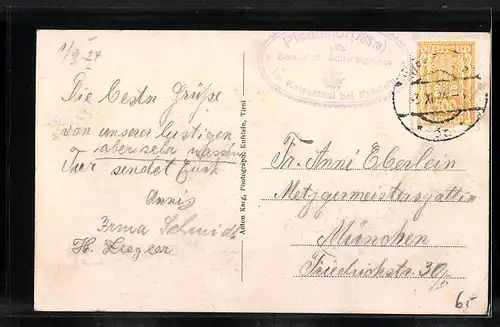 1/XI. 24
Die besten Grüße
von unserer lustigen
aber sehr nassen
Tour sendet Euch
Annis
Irma Schmidt
H. Ziegler
Anton Karg, Photograph, Kufstein, Tirol
Pfandlhof (783m)
im Kaisertal bei Kufstein
Fr. Anni Eberlein
Metzgermeistersgattin
München
Friedrichstr. 30/
65